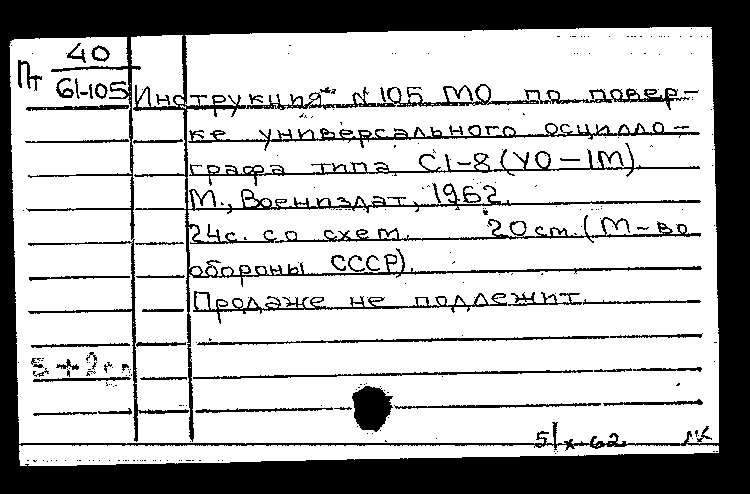 Пт 40
61-105 Инструкция N 105 МО по повер-
ке универсального осцилло-
графа типа С1-8 (УО-1М).
М., Воениздат, 1962.
24с. со схем. 20 см. (М-во
обороны СССР).
Продаже не подлежит.
5/x-62 МК